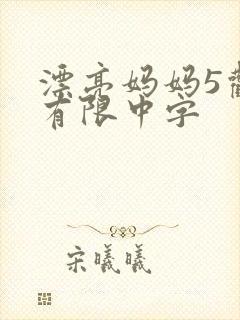 漂亮妈妈5
有限中字
宋曦曦